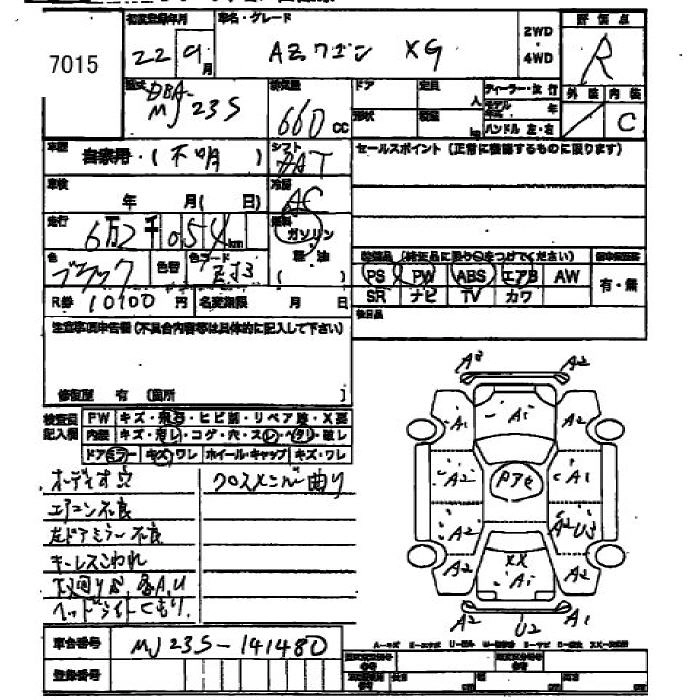 7015
初度登録年月
22年9月
車名・グレード
AZワゴン XG
2WD
・
4WD
評価点
R
外装 内装
C
型式
DBA-
MJ23S
排気量
660cc
ドア
定員
人
形状
積載
kg
ディーラー・並行
モデル 年
ハンドル 左・右
車歴
自家用・(不明)
シフト
FAT
冷房
AC
セールスポイント(正常に機能するものに限ります)
車検
年 月(日)
走行
6万2千054km
燃料
ガソリン
軽・油
色
ブラック
色替
色コード
ZJ3
PS PW ABS エアB AW
SR ナビ TV カワ
有・無
R券 10100円
名変期限 月 日
後日品
注意事項申告書(不具合内容等は具体的に記入して下さい)
修復歴 有 [箇所 ]
検査員
記入欄
FW キズ・飛石・ヒビ割・リペア跡・X要
内装 キズ・汚レ・コゲ・穴・スレ・ヘタリ・破レ
ドアミラー キズ・ワレ ホイール・キャップ キズ・ワレ
オーディオ欠
クロスメンバー曲り
エアコン不良
左ドアミラー不良
キーレスこわれ
下回りS、各A、U
ヘッドライトくもり
A3 A2
A1 A1 A2
A2 P7E A1
A2 A2 U3
A2 XX A1 A2
A2 U2 A1
車台番号 MJ23S-141480
登録番号